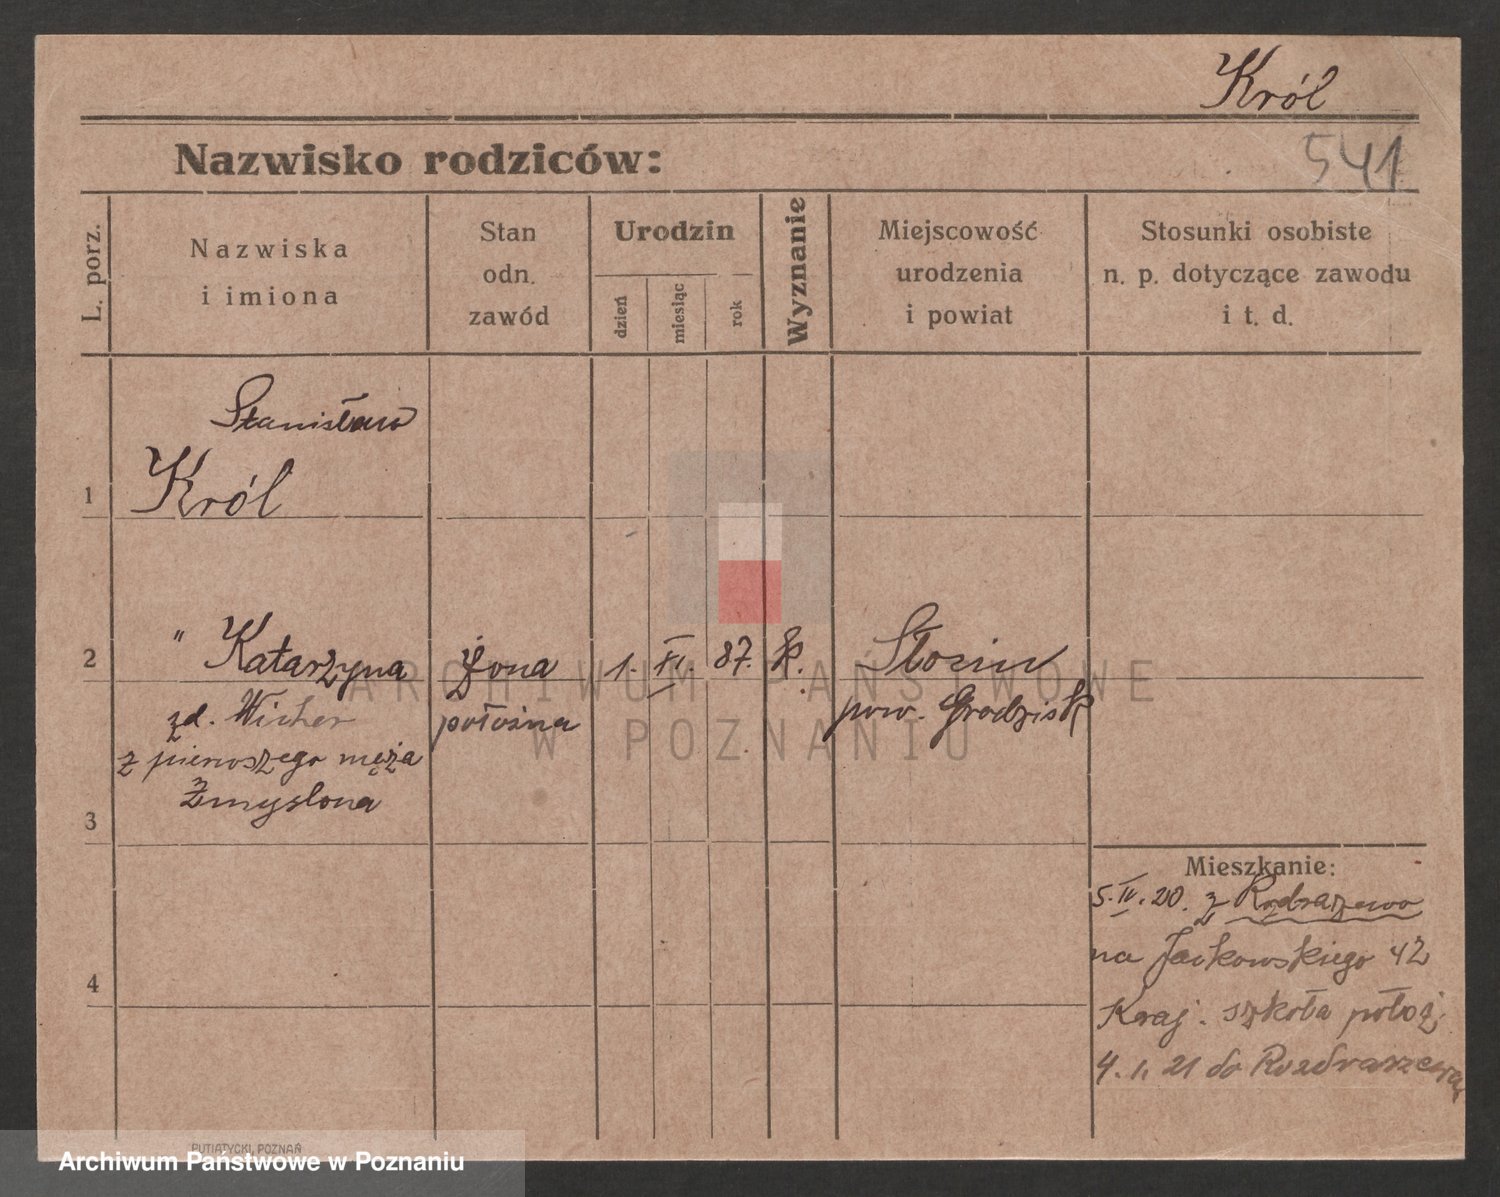 Król
Nazwisko rodziców:
541
L. porz.
Nazwiska
i imiona
Stan
odn.
zawód
Urodzin
dzień
miesiąc
rok
Wyznanie
Miejscowość
urodzenia
i powiat
Stosunki osobiste
n. p. dotyczące zawodu
i t. d.
Stanisław
1 Król
2 " Katarzyna żona 1. XI 87. k. Słocin
zd. Wicher położna pow. Grodzisk
z pierwszego męża
Zmyslona
3
Mieszkanie:
5. IV. 20. z
na Jackowskiego 42
4
Kraj. szkoła położ.
4. 1. 21 do
PUTIATYCKI, POZNAŃ
ARCHIWUM PAŃSTWOWE
W POZNANIU
Archiwum Państwowe w Poznaniu